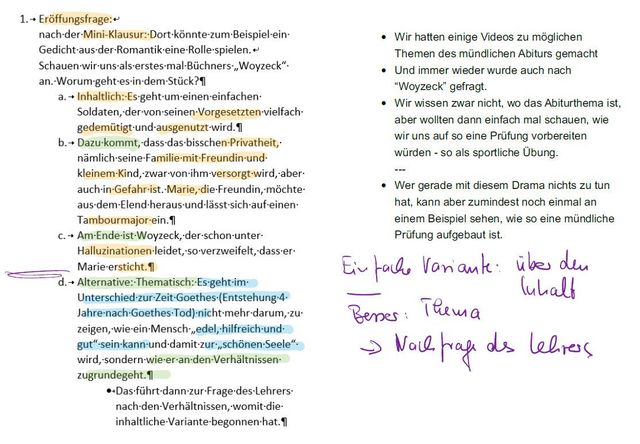 1. Eröffungsfrage:
nach der Mini-Klausur: Dort könnte zum Beispiel ein
Gedicht aus der Romantik eine Rolle spielen.
Schauen wir uns als erstes mal Büchners „Woyzeck“
an. Worum geht es in dem Stück?¶
a. Inhaltlich: Es geht um einen einfachen
Soldaten, der von seinen Vorgesetzten vielfach
gedemütigt und ausgenutzt wird.¶
b. Dazu kommt, dass das bisschen Privatheit,
nämlich seine Familie mit Freundin und
kleinem Kind, zwar von ihm versorgt wird, aber
auch in Gefahr ist. Marie, die Freundin, möchte
aus dem Elend heraus und lässt sich auf einen
Tambourmajor ein.¶
c. Am Ende ist Woyzeck, der schon unter
Halluzinationen leidet, so verzweifelt, dass er
Marie ersticht.¶
d. Alternative: Thematisch: Es geht im
Unterschied zur Zeit Goethes (Entstehung 4
Jahre nach Goethes Tod) nicht mehr darum, zu
zeigen, wie ein Mensch „edel, hilfreich und
gut“ sein kann und damit zur „schönen Seele“
wird, sondern wie er an den Verhältnissen
zugrundegeht.¶
• Das führt dann zur Frage des Lehrers
nach den Verhältnissen, womit die
inhaltliche Variante begonnen hat.¶
• Wir hatten einige Videos zu möglichen
Themen des mündlichen Abiturs gemacht
• Und immer wieder wurde auch nach
“Woyzeck” gefragt.
• Wir wissen zwar nicht, wo das Abiturthema ist,
aber wollten dann einfach mal schauen, wie
wir uns auf so eine Prüfung vorbereiten
würden - so als sportliche Übung.
---
• Wer gerade mit diesem Drama nichts zu tun
hat, kann aber zumindest noch einmal an
einem Beispiel sehen, wie so eine mündliche
Prüfung aufgebaut ist.
Einfache Variante: über den
Inhalt
Besser: Thema
→ Nachfrage des Lehrers